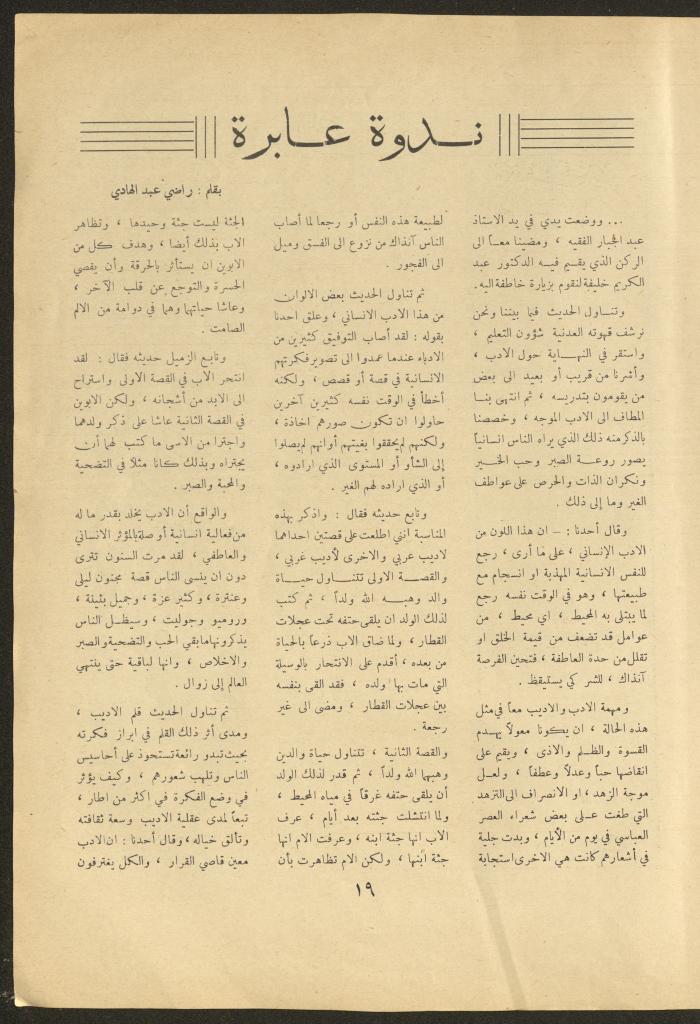 ندوة عابرة
بقلم : راضي عبد الهادي
... ووضعت يدي في يد الاستاذ
عبد الجبار الفقيه ، ومضينا معاً الى
الركن الذي يقيم فيه الدكتور عبد
الكريم خليفة لنقوم بزيارة خاطفة اليه.
وتناول الحديث فيما بيننا ونحن
نرشف قهوته العدنية شؤون التعليم ،
واستقر في النهاية حول الادب ،
وأشرنا من قريب أو بعيد الى بعض
من يقومون بتدريسه ، ثم انتهى بنا
المطاف الى الادب الموجه ، وخصصنا
بالذكر منه ذلك الذي يراه الناس انسانياً
يصور روعة الصبر وحب الخير
ونكران الذات والحرص على عواطف
الغير وما إلى ذلك .
وقال أحدنا : – ان هذا اللون من
الادب الإنساني ، على ما أرى ، رجع
للنفس الانسانية المهذبة او انسجام مع
طبيعتها ، وهو في الوقت نفسه رجع
لما يبتلى به المحيط ، اي محيط ، من
عوامل قد تضعف من قيمة الخلق او
تقلل من حدة العاطفة ، فتحين الفرصة
آنذاك ، للشر كي يستيقظ .
و مهمة الادب والاديب معاً في مثل
هذه الحالة ، ان يكونا معولاً يهدم
القسوة والظلم والاذى ، ويقيم على
انقاضها حباً وعدلاً وعطفاً ، ولعل
موجة الزهد ، او الانصراف الى التزهد
التي طغت على بعض شعراء العصر
العباسي في يوم من الأيام ، وبدت جلية
في أشعارهم كانت هي الاخرى استجابة
لطبيعة هذه النفس أو رجعا لما أصاب
الناس آنذاك من نزوع الى الفسق وميل
الى الفجور .
ثم تناول الحديث بعض الالوان
من هذا الادب الانساني ، وعلق احدنا
بقوله : لقد أصاب التوفيق كثيرين من
الادباء عندما عمدوا الى تصوير فكرتهم
الانسانية في قصة أو قصص ، ولكنه
أخطأ في الوقت نفسه كثيرين آخرين
حاولوا ان تكون صورهم اخاذة ،
ولكنهم لم يحققوا بغيتهم أو انهم لم يصلوا
إلى الشأو أو المستوى الذي ارادوه ،
أو الذي اراده لهم الغير .
وتابع حديثه فقال : واذكر بهذه
المناسبة انني اطلعت على قصتين احداهما
لاديب عربي والاخرى لأديب غربي ،
والقصة الاولى تتناول حياة
والد وهبه الله ولداً ، ثم كتب
لذلك الولد ان يلقى حتفه تحت عجلات
القطار ، ولما ضاق الاب ذرعاً بالحياة
من بعده ، أقدم على الانتحار بالوسيلة
التي مات بها ولده ، فقد القى بنفسه
بين عجلات القطار ، ومضى الى غير
رجعة .
والقصة الثانية ، تتناول حياة والدين
وهبهما الله ولداً ، ثم قدر لذلك الولد
أن يلقى حتفه غرقاً في مياه المحيط ،
ولما انتشلت جثته بعد أيام ، عرف
الاب انها جثة ابنه ، وعرفت الام انها
جثة ابنها ، ولكن الام تظاهرت بأن
الجثة ليست جثة وحيدها ، وتظاهر
الاب بذلك أيضا ، وهدف كل من
الابوين ان يستأثر بالحرقة وأن يقصي
الحسرة والتوجع عن قلب الآخر ،
وعاشا حياتهما وهما في دوامة من الالم
الصامت .
وتابع الزميل حديثه فقال : لقد
انتحر الأب في القصة الاولى واستراح
الى الابد من أشجانه ، ولكن الابوين
في القصة الثانية عاشا على ذكر ولدهما
واجترا من الاسى ما كتب لهما أن
يجتراه وبذلك كانا مثلاً في التضحية
والمحبة والصبر .
والواقع أن الادب يخلد بقدر ما له
من فعالية انسانية أو صلة بالمؤثر الانساني
والعاطفي ، لقد مرت السنون تترى
دون ان ينسى الناس قصة مجنون ليلى
وعنترة ، وكثير عزة ، وجميل بثينة ،
وروميو وجوليت ، وسيظل الناس
يذكرونها ما بقي الحب والتضحية والصبر
والاخلاص ، وانها لباقية حتى ينتهي
العالم إلى زوال .
ثم تناول الحديث قلم الاديب ،
ومدى أثر ذلك القلم في ابراز فكرته
بحيث تبدو رائعة تستحوذ على أحاسيس
الناس وتلهب شعورهم ، وكيف يؤثر
في وضع الفكرة في اكثر من اطار ،
تبعاً لمدى عقلية الاديب وسعة ثقافته
وتألق خياله ، وقال أحدنا : ان الادب
معين قاصي القرار ، والكل يغترفون
١٩